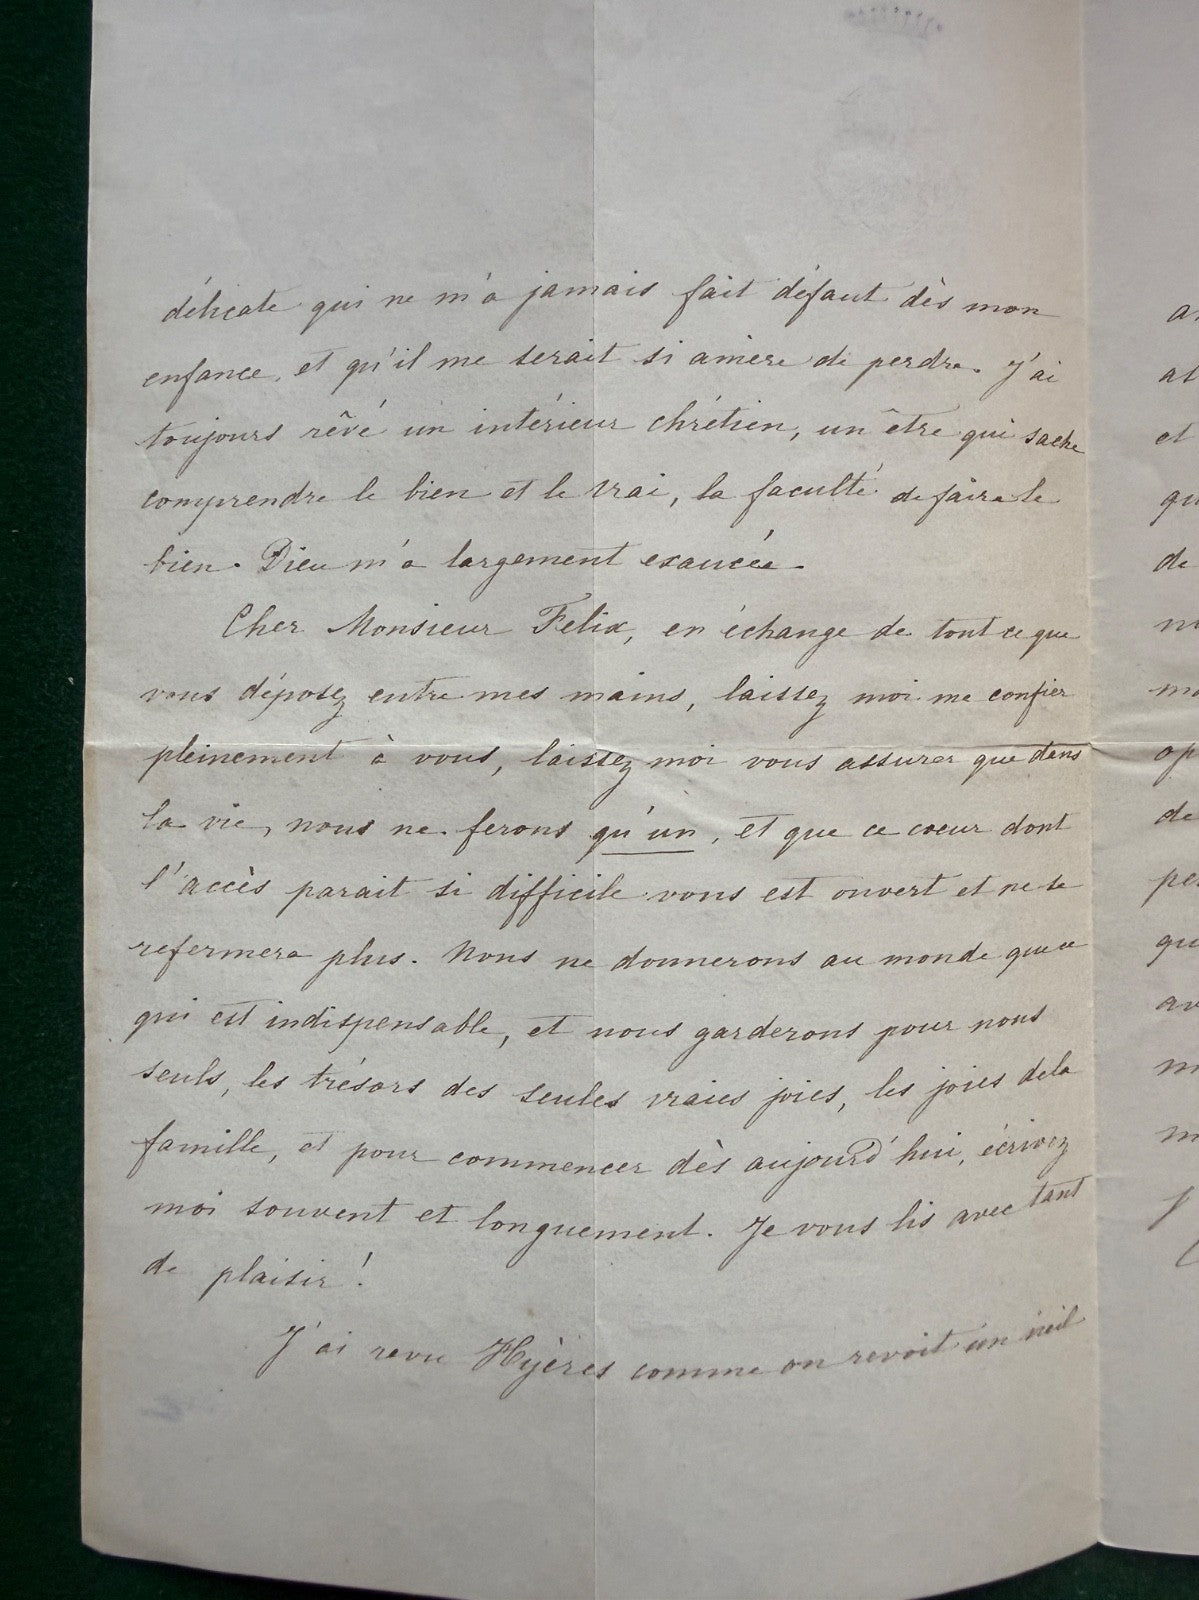 délicate qui ne m'a jamais fait défaut dès mon
enfance, et qu'il me serait si amère de perdre. J'ai
toujours rêvé un intérieur chrétien, un être qui sache
comprendre le bien et le vrai, la faculté de faire le
bien. Dieu m'a largement exaucée.
Cher Monsieur Felix, en échange de tout ce que
vous déposez entre mes mains, laissez moi me confier
pleinement à vous, laissez moi vous assurer que dans
la vie, nous ne ferons qu'un, et que ce coeur dont
l'accès parait si difficile vous est ouvert et ne se
refermera plus. Nous ne donnerons au monde que ce
qui est indispensable, et nous garderons pour nous
seuls, les trésors des seules vraies joies, les joies de la
famille, et pour commencer dès aujourd'hui, écrivez
moi souvent et longuement. Je vous lis avec tant
de plaisir!
J'ai revu Hyères comme on revoit un
at
et
qu
de
op
de
qu
av